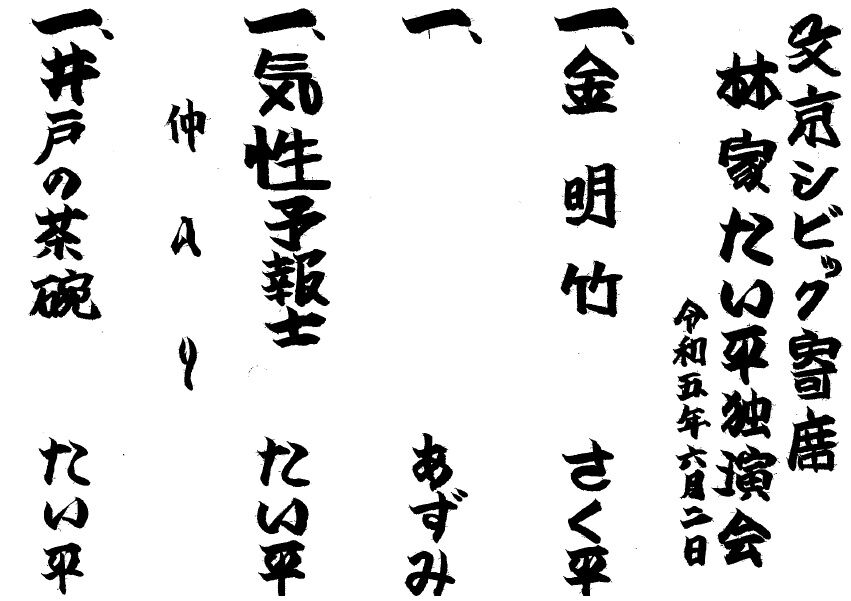 文京シビック寄席
林家たい平独演会
令和五年六月二日
一、金明竹 さく平
一、 あずみ
一、気性予報士 たい平
仲入り
一、井戸の茶碗 たい平